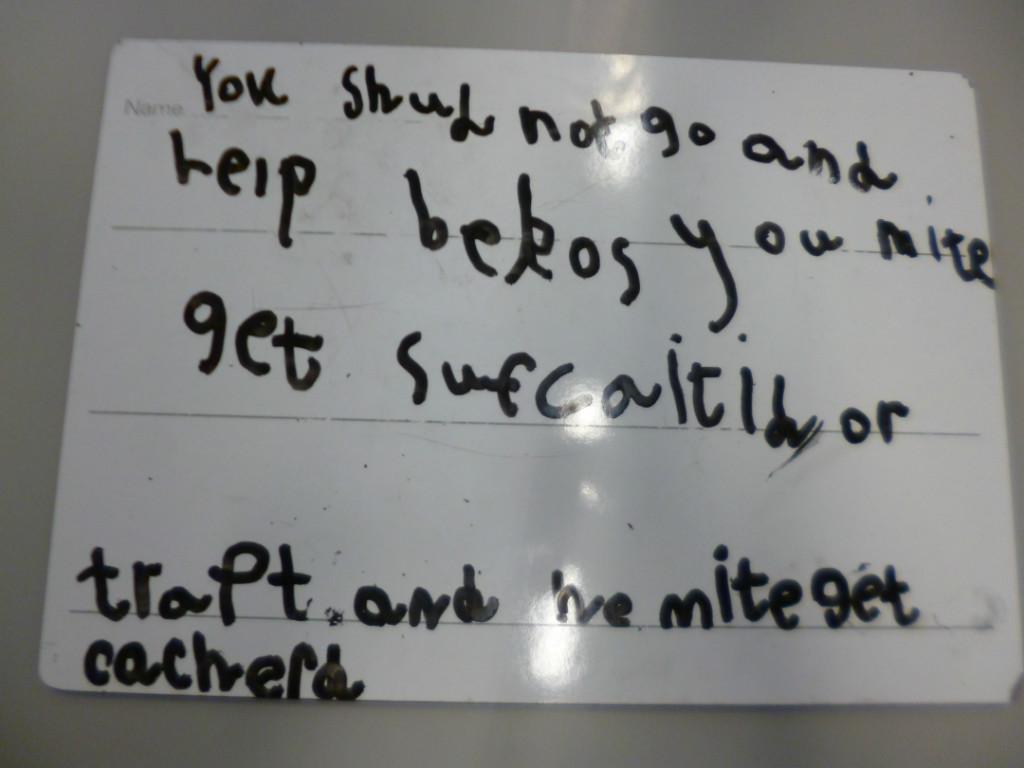 Name You shud not go and
help bekos you mite
get sufcaitid or
trapt. and he mite get
cacherd